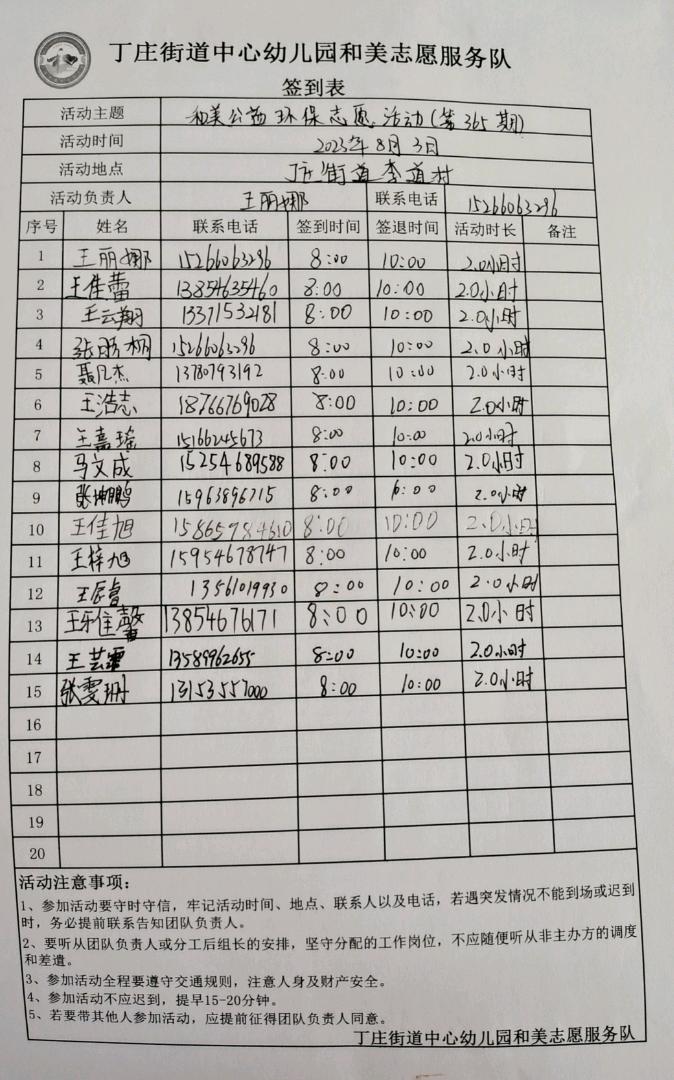 丁庄街道中心幼儿园和美志愿服务队
签到表
活动主题 和美公益环保志愿活动(第365期)
活动时间 2023年8月3日
活动地点 丁庄街道李道村
活动负责人 王丽娜 联系电话 15266063296
序号 姓名 联系电话 签到时间 签退时间 活动时长 备注
1 王丽娜 15266063296 8:00 10:00 2.0小时
2 王佳蕾 13854635460 8:00 10:00 2.0小时
3 王云翔 13371532181 8:00 10:00 2.0小时
4 张 桐 15266063296 8:00 10:00 2.0小时
5 聂凡杰 13780793192 8:00 10:00 2.0小时
6 王浩志 18766769028 8:00 10:00 2.0小时
7 王嘉瑶 15166245673 8:00 10:00 2.0小时
8 马文成 15254689588 8:00 10:00 2.0小时
9 张坤鹏 15963896715 8:00 10:00 2.0小时
10 王佳旭 15865984610 8:00 10:00 2.0小时
11 王梓旭 15954678747 8:00 10:00 2.0小时
12 王辰睿 13561019930 8:00 10:00 2.0小时
13 王雅馨 13854676171 8:00 10:00 2.0小时
14 王芸霏 13589962655 8:00 10:00 2.0小时
15 张雯珊 13153557000 8:00 10:00 2.0小时
16
17
18
19
20
活动注意事项:
1、参加活动要守时守信,牢记活动时间、地点、联系人以及电话,若遇突发情况不能到场或迟到
时,务必提前联系告知团队负责人。
2、要听从团队负责人或分工后组长的安排,坚守分配的工作岗位,不应随便听从非主办方的调度
和差遣。
3、参加活动全程要遵守交通规则,注意人身及财产安全。
4、参加活动不应迟到,提早15-20分钟。
5、若要带其他人参加活动,应提前征得团队负责人同意。
丁庄街道中心幼儿园和美志愿服务队